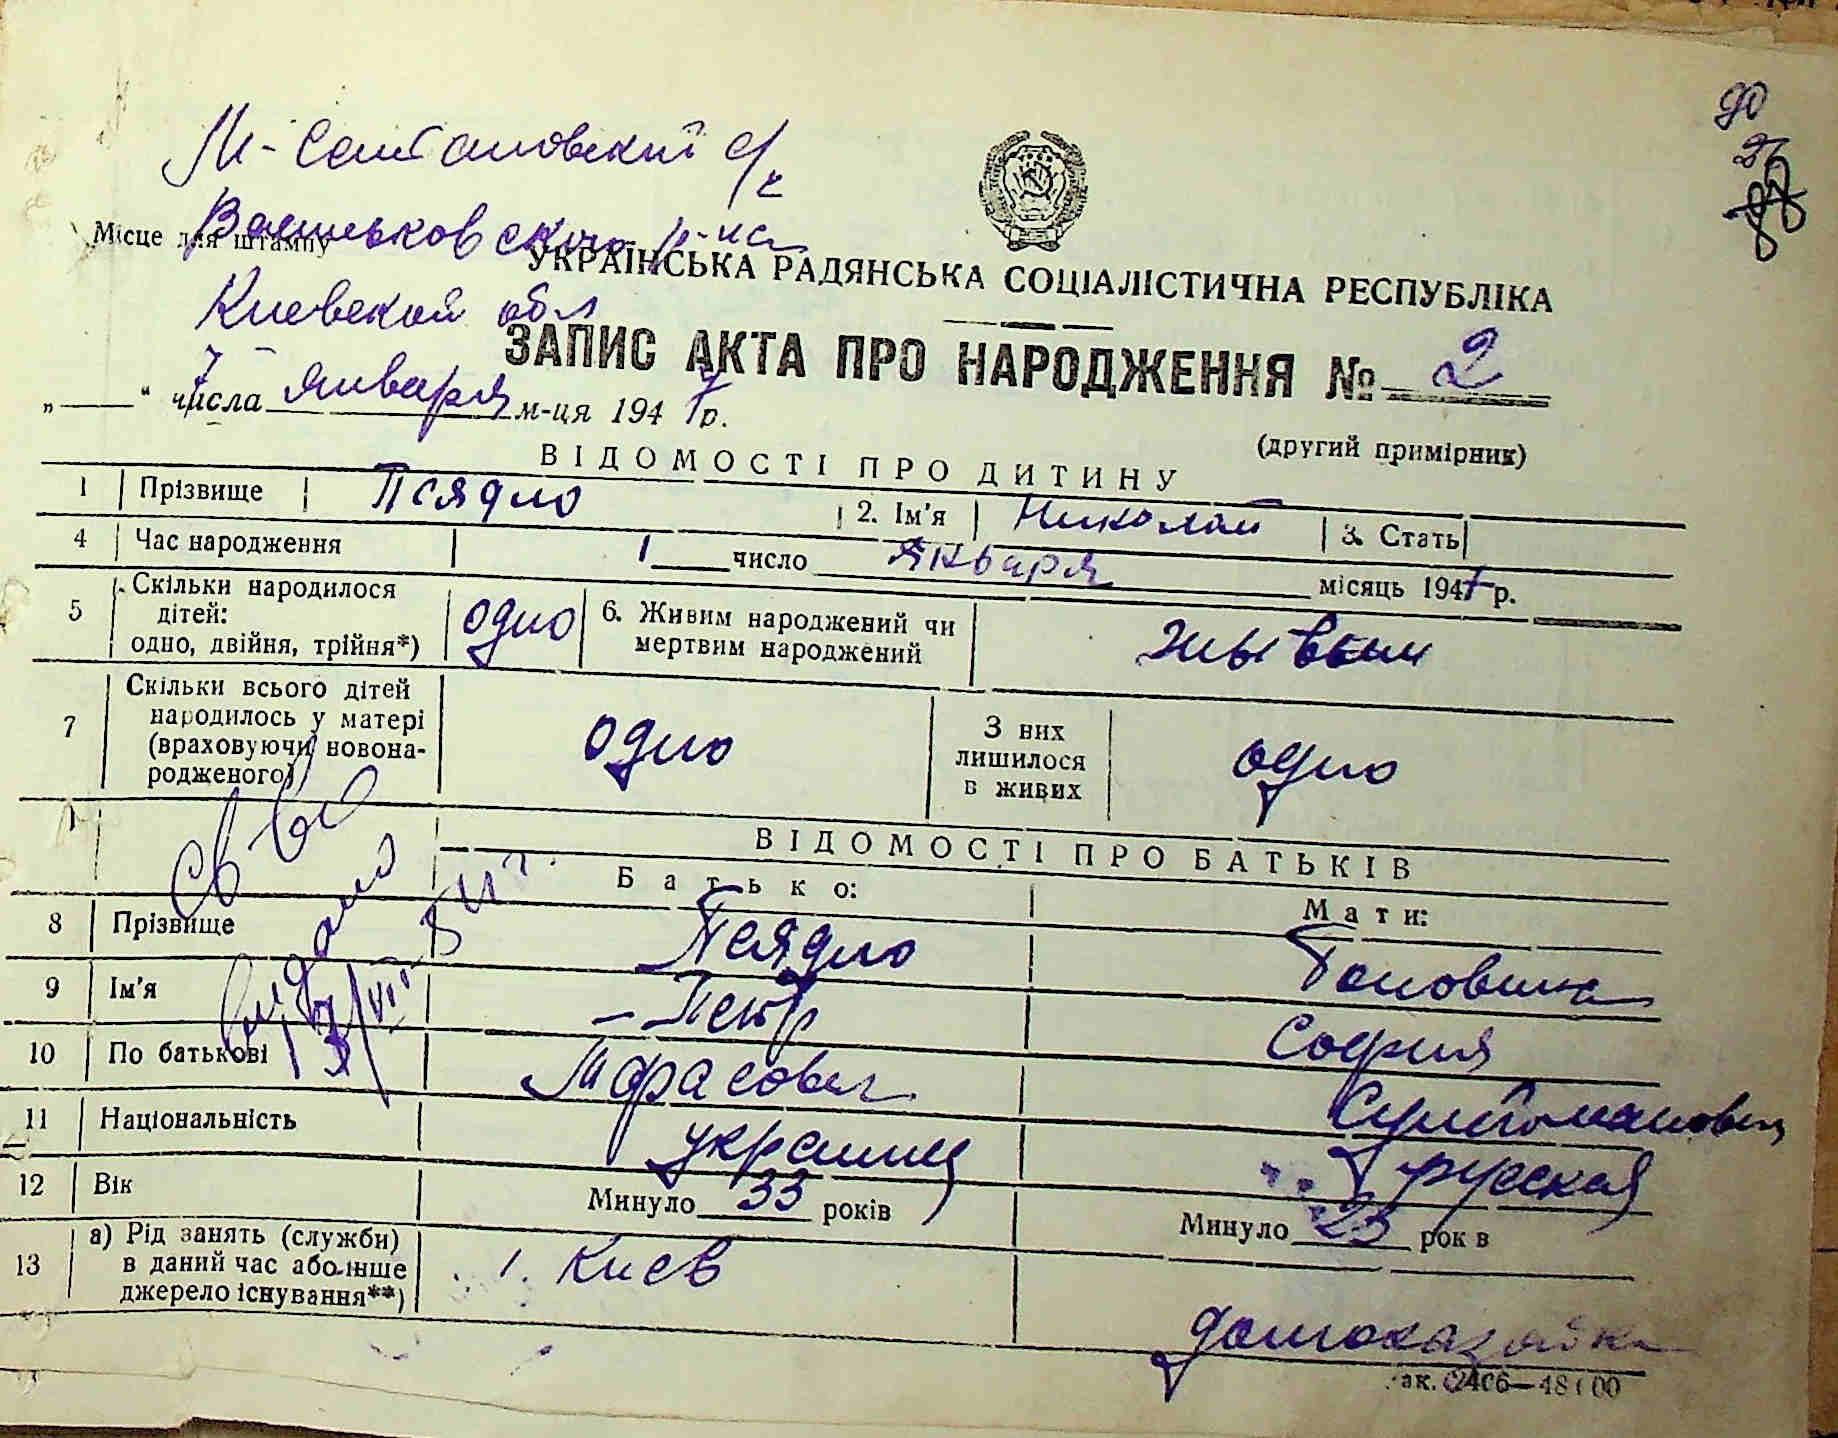 90
М-Салтановский с/с
Васильковского р-на
Місце для штампу
УКРАЇНСЬКА РАДЯНСЬКА СОЦІАЛІСТИЧНА РЕСПУБЛІКА
Киевской обл
ЗАПИС АКТА ПРО НАРОДЖЕННЯ № 2
„ 7 “ числа января м-ця 1947 р.
(другий примірник)
ВІДОМОСТІ ПРО ДИТИНУ
1 Прізвище Псядло 2. Ім'я Николай 3. Стать
4 Час народження 1 число января місяць 1947 р.
5 Скільки народилося дітей: одно, двійня, трійня*) одно 6. Живим народжений чи мертвим народжений живым
7 Скільки всього дітей народилось у матері (враховуючи новонародженого) одно З них лишилося в живих одно
ВІДОМОСТІ ПРО БАТЬКІВ
Батько: Мати:
8 Прізвище Псядло
9 Ім'я Петр София
10 По батькові Тарасович
11 Національність украинец русская
12 Вік Минуло 33 років Минуло 23 років
13 а) Рід занять (служби) в даний час або інше джерело існування**) г. Киев домохазяйка
Св во
видано